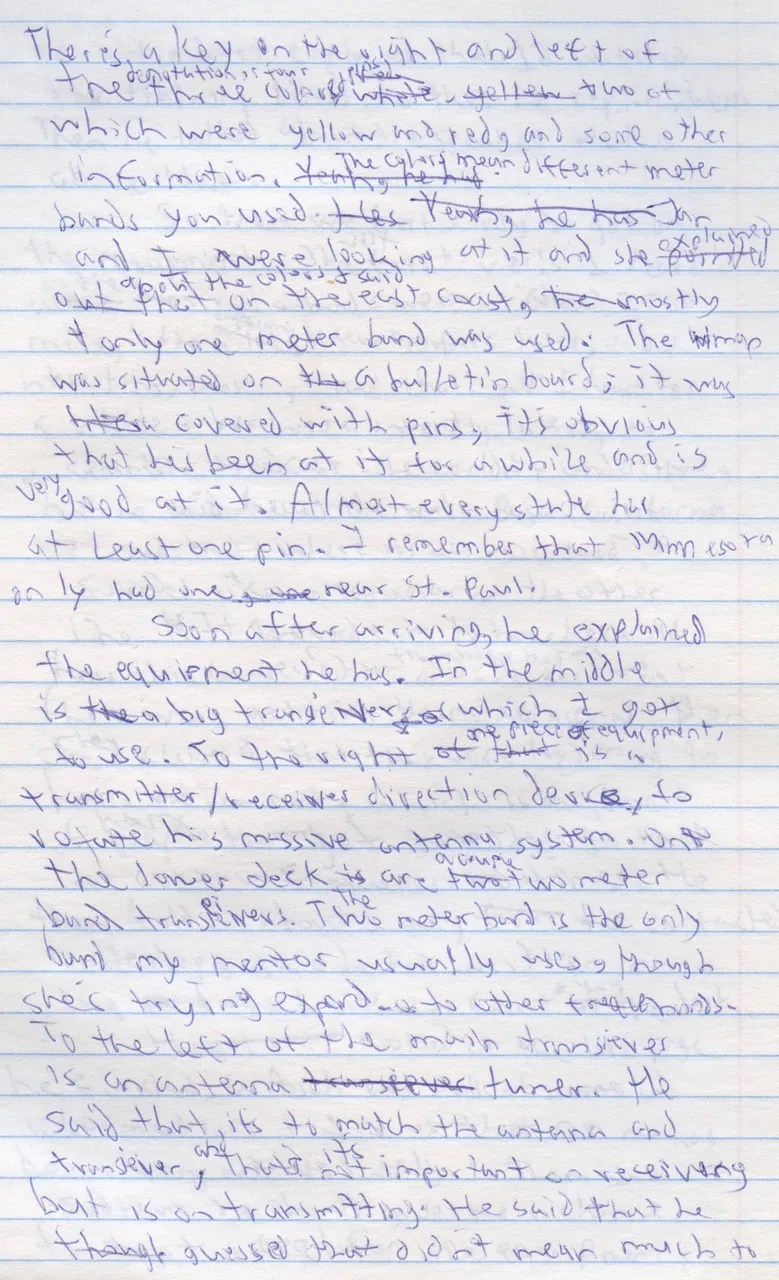 There's a key on the right and left of
the three colors white, yellow two of
which were yellow and red, and some other
information. Yeah, he has The colors mean different meter
bands you used. Yeah, he has Jan
and I were looking at it and she pointed explained
out that about the colors & said on the east coast, the mostly
only one meter band was used. The map
was situated on the a bulletin board; it was
covered with pins, it's obvious
that he's been at it for awhile and is
very good at it. Almost every state has
at least one pin. I remember that Minnesota
only had one, one near St. Paul.
Soon after arriving, he explained
the equipment he has. In the middle
is the a big transeiver, which I got
to use. To the right of that one piece of equipment, is a
transmitter/receiver direction device, to
rotate his massive antenna system. On
the lower deck is are two a couple two meter
band transeivers. The Two meter band is the only
band my mentor usually uses, though
she's trying expand to other bands.
To the left of the main transiever
is an antenna transiever tuner. He
said that, its to match the antenna and
transiever, and that's not its important on receiving
but is on transmitting. He said that he
though guessed that didn't mean much to